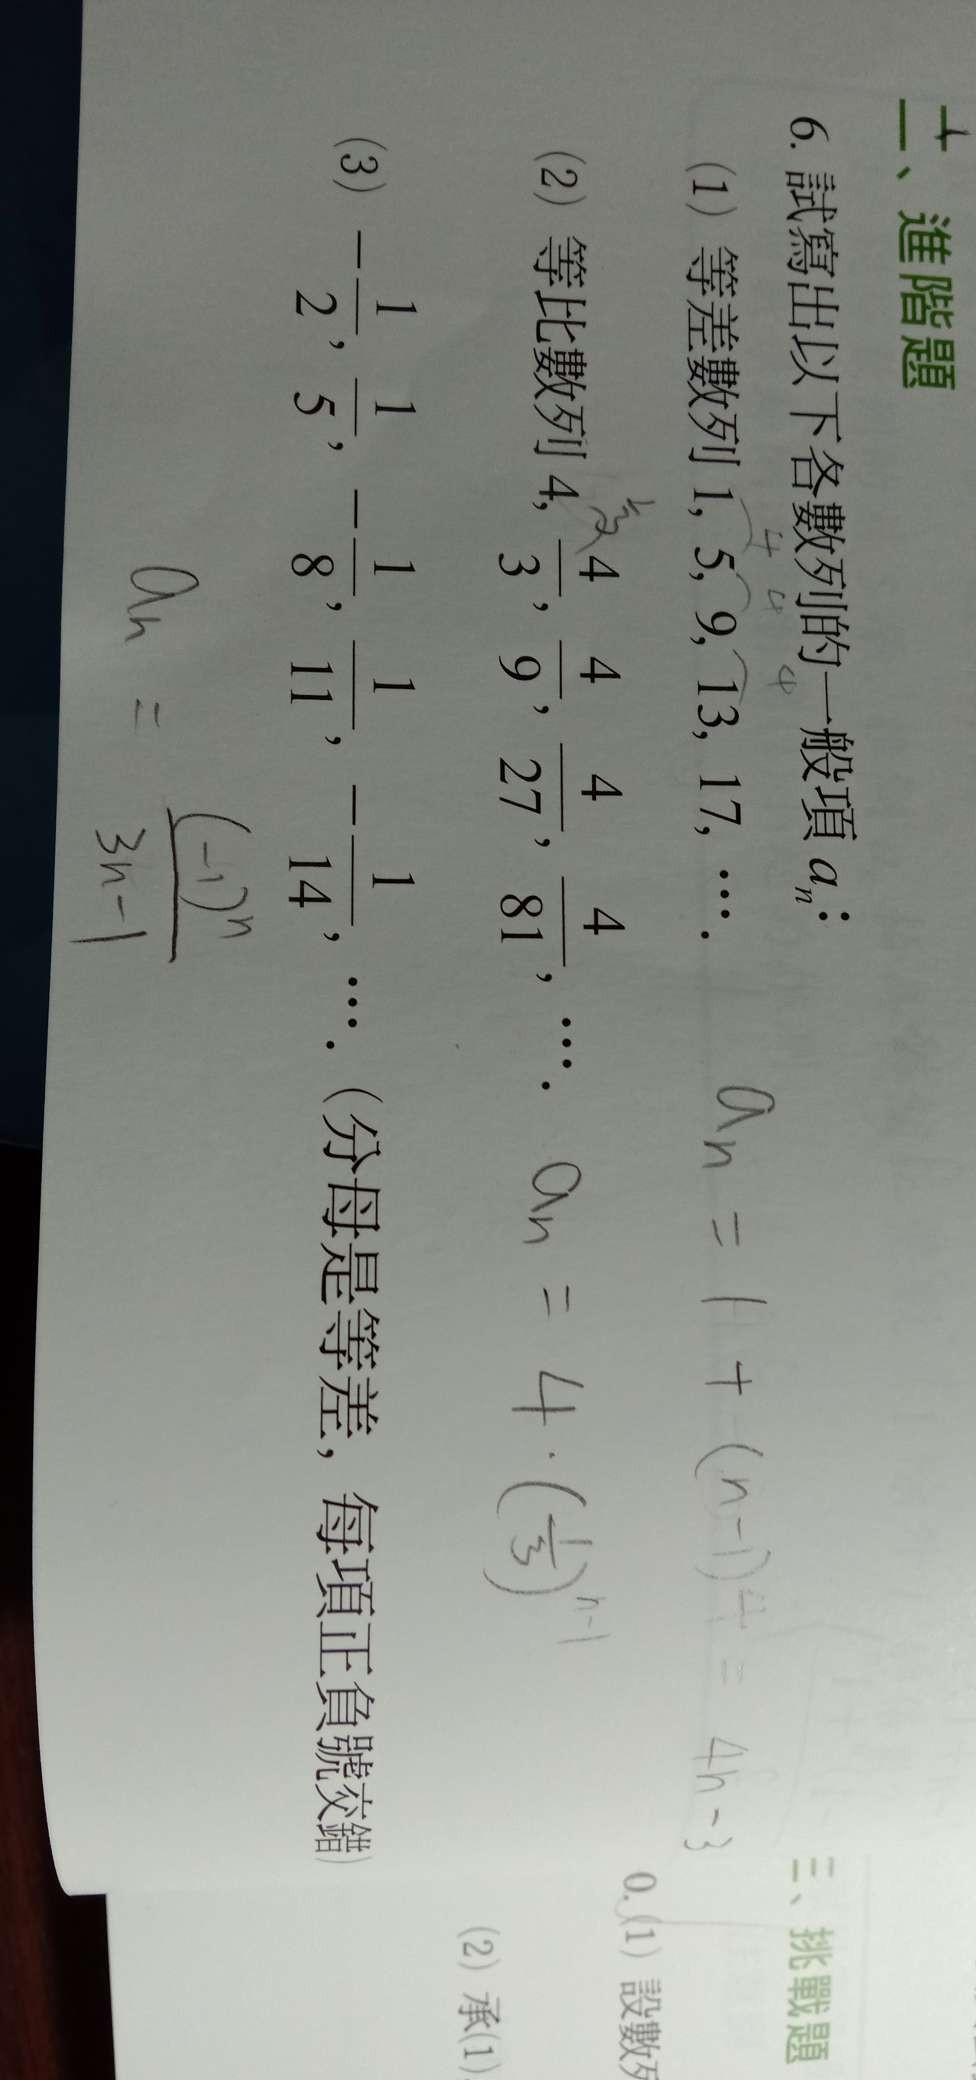 二、進階題
6. 試寫出以下各數列的一般項 aₙ：
4 4 4
(1) 等差數列 1, 5, 9, 13, 17, ⋯. aₙ = 1 + (n-1)4 = 4n-3
(2) 等比數列 4, 4/3, 4/9, 4/27, 4/81, ⋯. aₙ = 4 · (1/3)ⁿ⁻¹
(3) -1/2, 1/5, -1/8, 1/11, -1/14, ⋯. (分母是等差, 每項正負號交錯)
aₙ = (-1)ⁿ/3n-1
三、挑戰題
0. (1) 設數列
(2) 承(1)